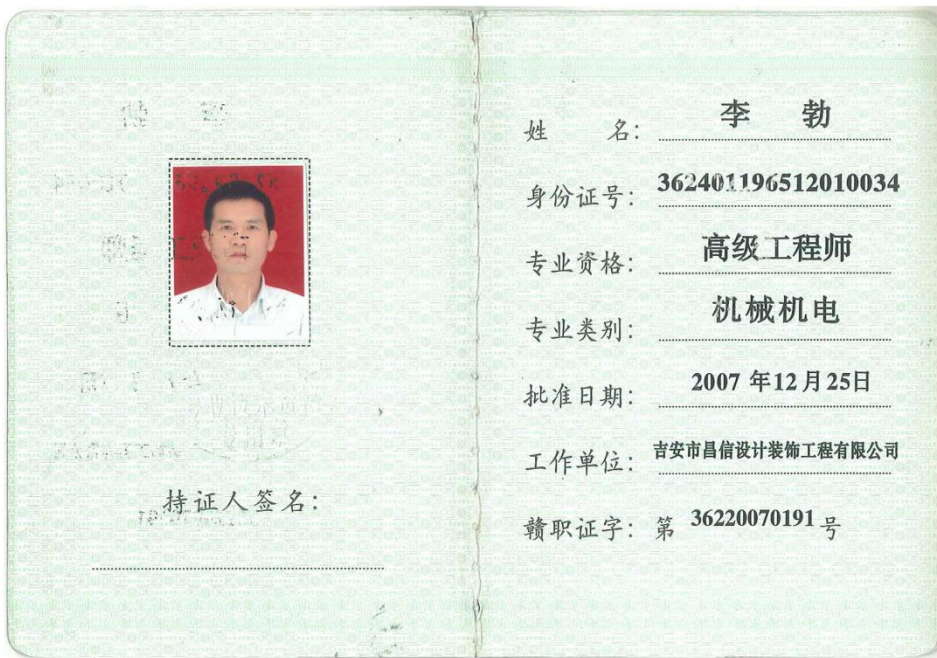 持证人签名：
姓 名： 李 勃
身份证号： 362401196512010034
专业资格： 高级工程师
专业类别： 机械机电
批准日期： 2007 年12月25日
工作单位： 吉安市昌信设计装饰工程有限公司
赣职证字：第 36220070191 号